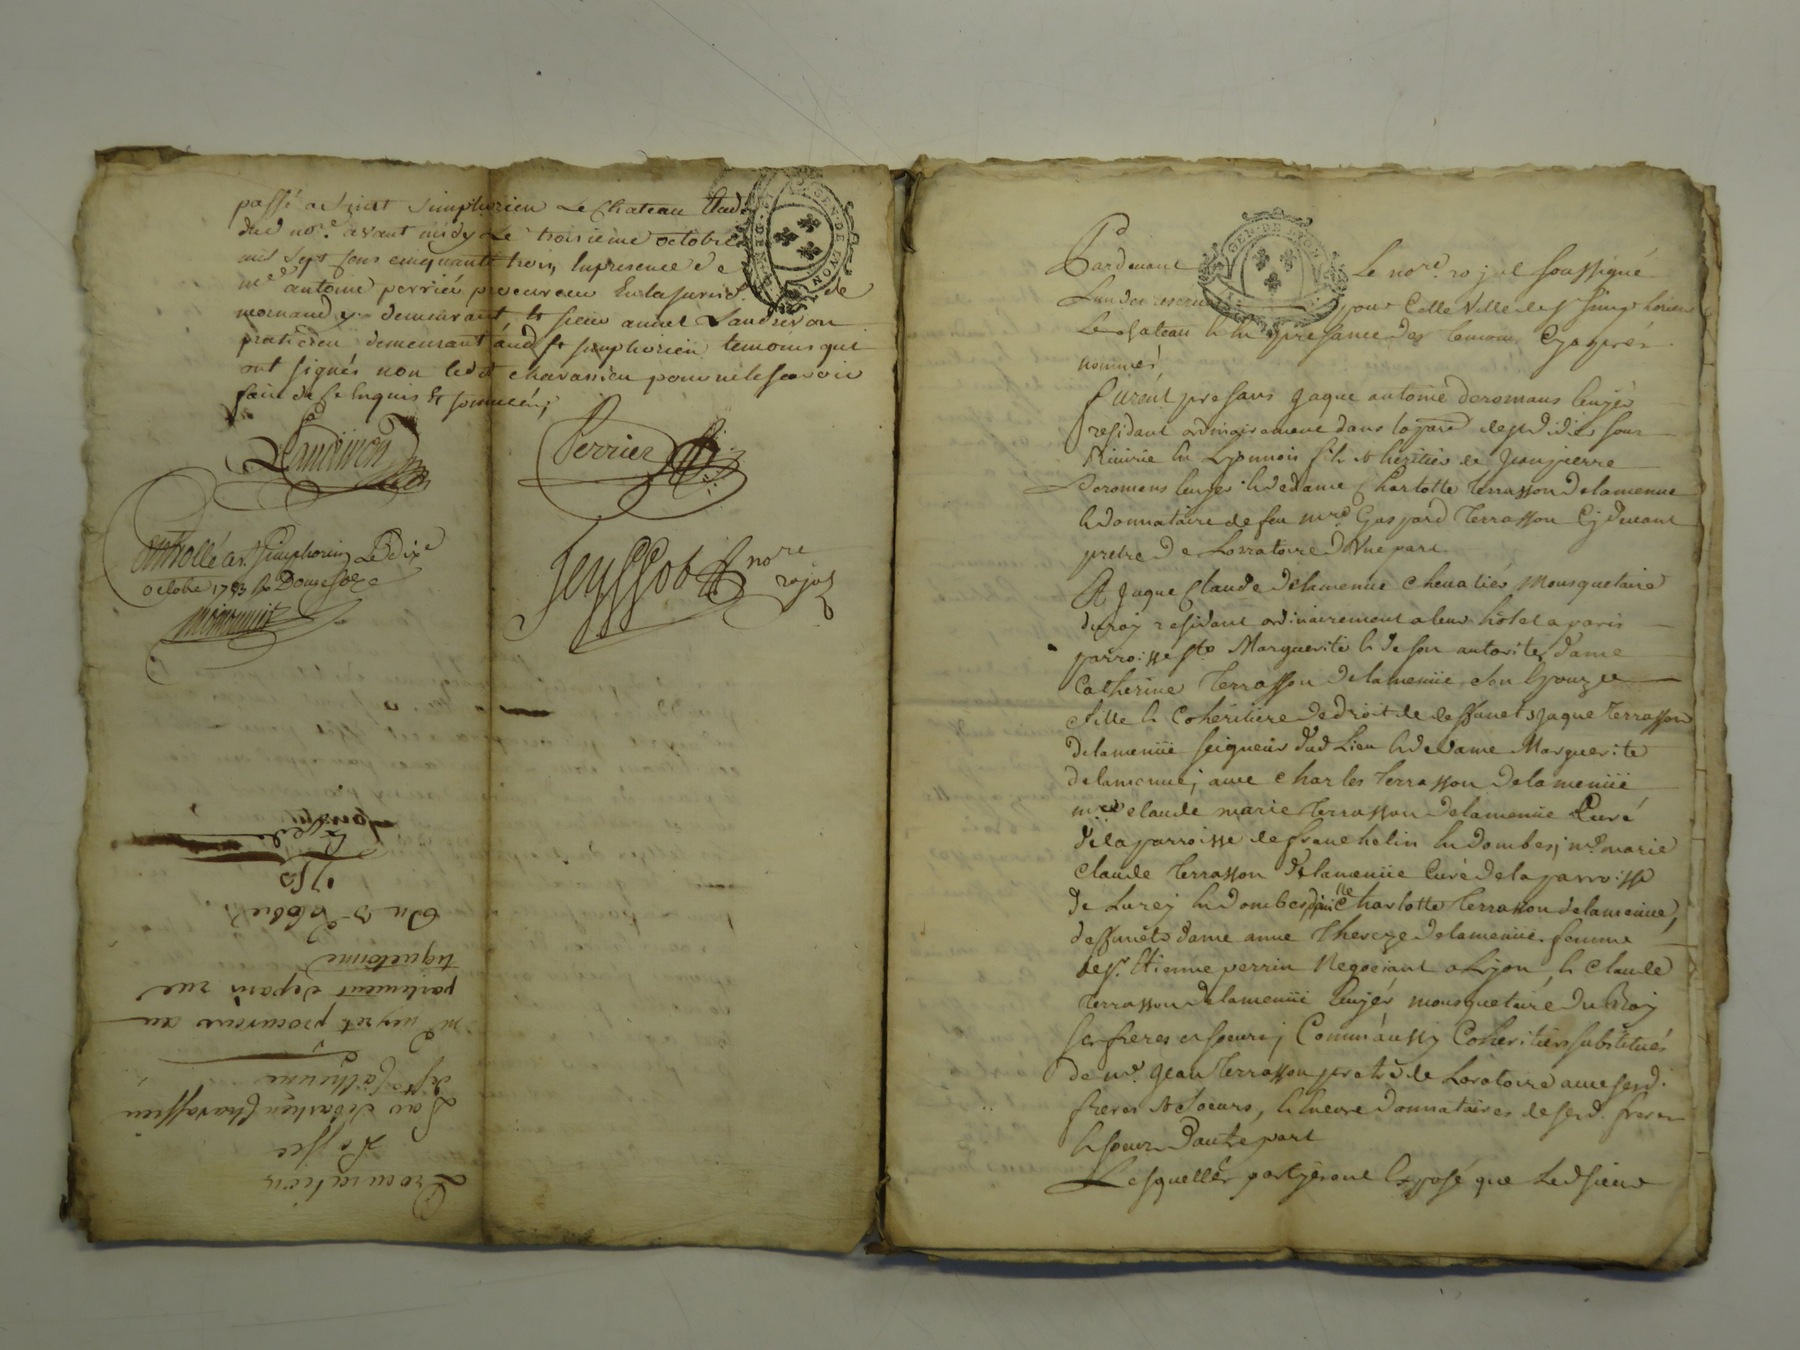 passé a Saint Simphorien Le Chateau Etude
dud nore. avant midy Le troisieme octobre
mil sept cens cinquante trois, En presence de
me. antoine perrier procureur En la jurisd. de
mornand y demeurant & sieur annet Landrivon
praticien demeurant aud St simphorien temoins qui
ont signés non led chavassieu pour ne le scavoir
faire de ce Enquis Et sommé;
Landrivon
Perrier
Controllé a St. Simphorien Le dix
octobre 1753 Rx Douze sols
Jeyssot nore royal
GEN DE LYON
Procuration
passée
Par Sebastien Chavassieu
Catherine
a me negret procureur au
parlement de paris rue
tiquetonne
Du 3 8bre
1753
GEN DE LYON
Pardevant Le nore. royal soussigné
pour Cette Ville de St Simphorien
Le chateau & En presance des temoins Cy apprés
nommés
Furent presans Jaque antoine deromans Ecuyer
residant ordinairement dans la parr de st didier sous
Riverie En Lyonnois fils & héritier de Jean pierre
deromans Ecuyer & de dame Charlotte Terrasson Delamenue
& donnataire de feu mre. Gaspard Terrasson Cy devant
pretre De Lorratoire D'Vne part
Et Jaque Claude Delamenue Chevalier Mousquetaire
du roy residant ordinairement a leur hôtel a paris
parroisse ste Marguerite & de son autorité dame
Catherine Terrasson Delamenüe son Epouze
fille & Cohéritiere de droit de deffunet sr Jaque Terrasson
delamenüe seigneur Dud Lieu & de dame Marguerite
delamenue; avec Charles Terrasson Delamenüe
mre claude marie Terrasson Delamenüe Curé
de la parroisse de francheleins En dombes; mre marie
Claude Terrasson Delamenüe Curé de la parroisse
de Lurcy En dombes, Charlotte Terrasson delamenüe,
deffunéte dame anne Therese Delamenüe femme
de sr. Etienne perrin Negociant a Lyon, & Claude
Terrasson Delamenüe Ecuyer mousquetaire du Roy
ses freres et soeurs; Comme aussy Coheritiers substitués
de mr. Jean Terrasson pretre de Loratoire avec sesd.
freres & Soeurs, & Encore Donnataires de sesd. freres
& soeur D'autre part
Lesquelles parties ont Exposé que Led sieur